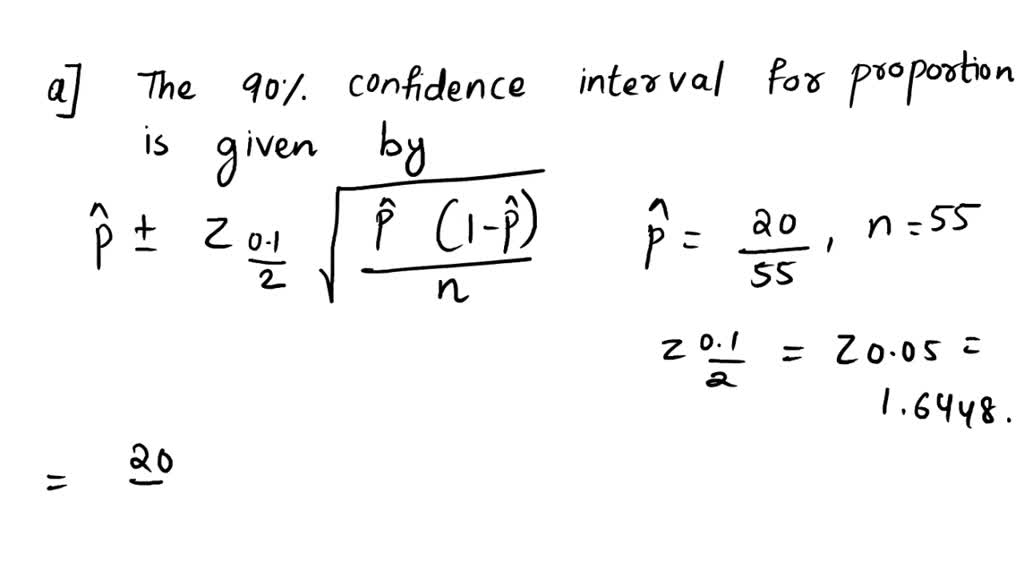 a] The 90% confidence interval for proportion
is given by
p̂ ± z 0.1/2 √ p̂ (1-p̂) / n
p̂ = 20/55 , n = 55
z 0.1/2 = z 0.05 =
1.6448.
= 20